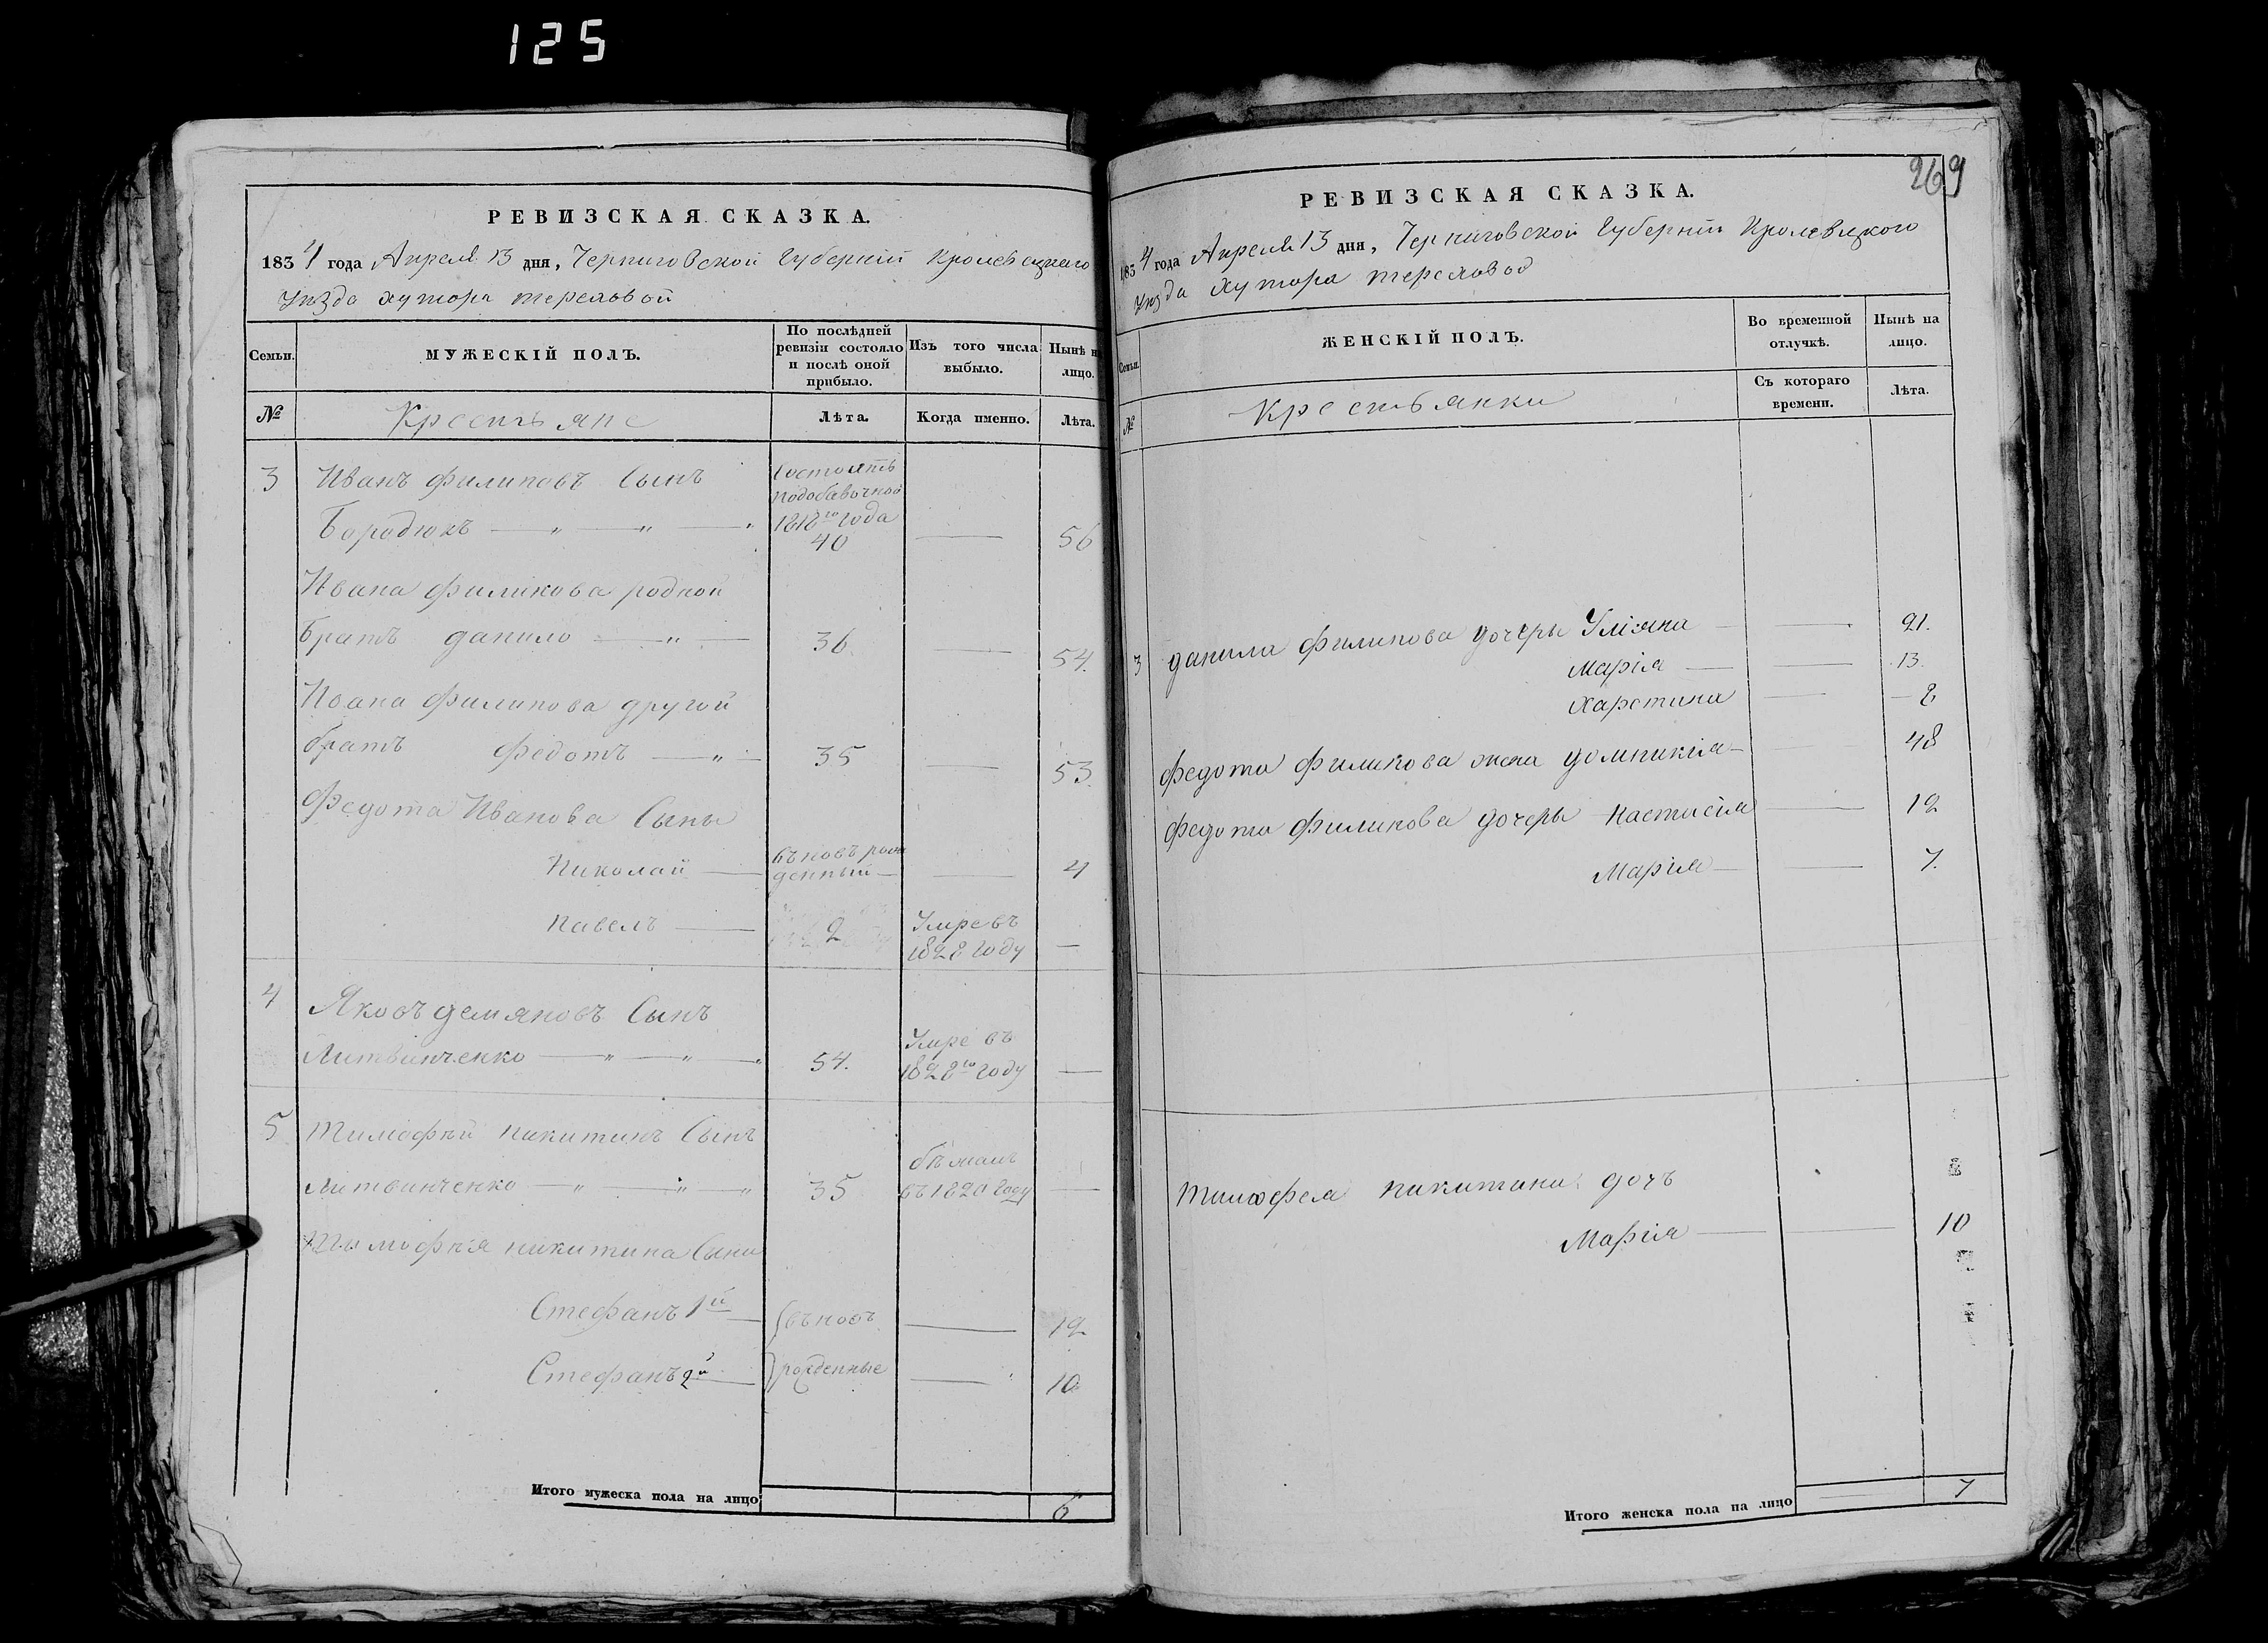 125
РЕВИЗСКАЯ СКАЗКА.
1834 года Апреля 13 дня, Черниговской Губерніи Кролевецкаго
Уезда хутора терсловой
Семьи.
МУЖЕСКІЙ ПОЛЪ.
По послѣдней ревизіи состояло и послѣ оной прибыло.
Изъ того числа выбыло.
Нынѣ на лицо.
№
Крестьяне
Лѣта.
Когда именно.
Лѣта.
3 Иванъ Филиповъ Сынъ
Состоятъ
подобавочной
Бородюкъ — " — " — "
1818го года
40 — 56
Ивана Филипова родной
братъ данило — " — 36. — 54.
Ивана Филипова другой
братъ Федотъ — " — 35 — 53.
Федота Иванова Сыны
Николай — въновь рож
денный — — 4
Павелъ — 2 Умре въ
1828 году —
4 Яковъ демяновъ Сынъ
Литвинченко — " — " — " 54. Умре въ
1828го году —
5 Тимофѣй никитинъ Сынъ
Литвинченко — " — " — " 35 бѣжалъ
въ 1820 году —
Тимофѣя никитина Сыны
Стефанъ 1й — въновь — 12
Стефанъ 2й — рожденные — 10.
Итого мужеска пола на лицо 6
269
РЕВИЗСКАЯ СКАЗКА.
1834 года Апреля 13 дня, Черниговской Губерніи Кролевецкого
Уезда хутора терсловой
Семьи.
ЖЕНСКІЙ ПОЛЪ.
Во временной отлучкѣ.
Нынѣ на лицо.
№
Крестьянки
Съ котораго времени.
Лѣта.
3 данила Филипова дочеры Уліяна — — 21.
Марія — — 13.
Харстина — — 8
Федота Филипова жена домникія — — 48
Федота Филипова дочеры Настасія — 12
Марія — — 7.
Тимофея никитина дочъ
Марія — — 10
Итого женска пола на лицо — 7